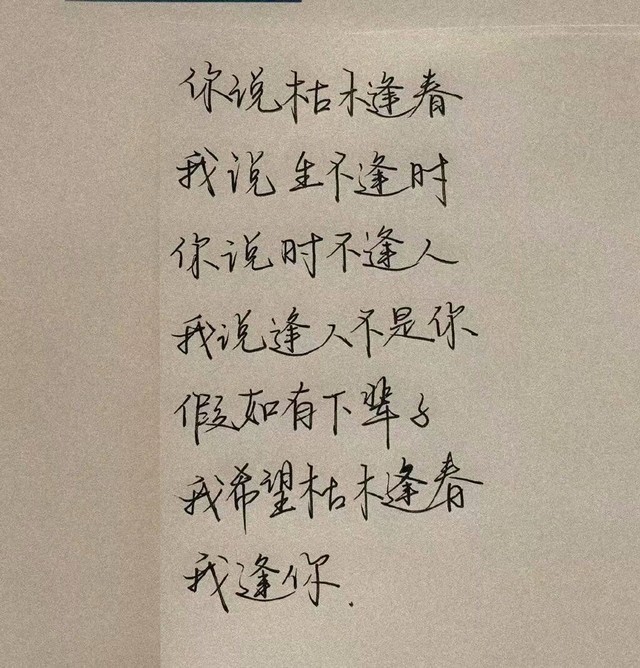 你说枯木逢春
我说生不逢时
你说时不逢人
我说逢人不是你
假如有下辈子
我希望枯木逢春
我逢你.